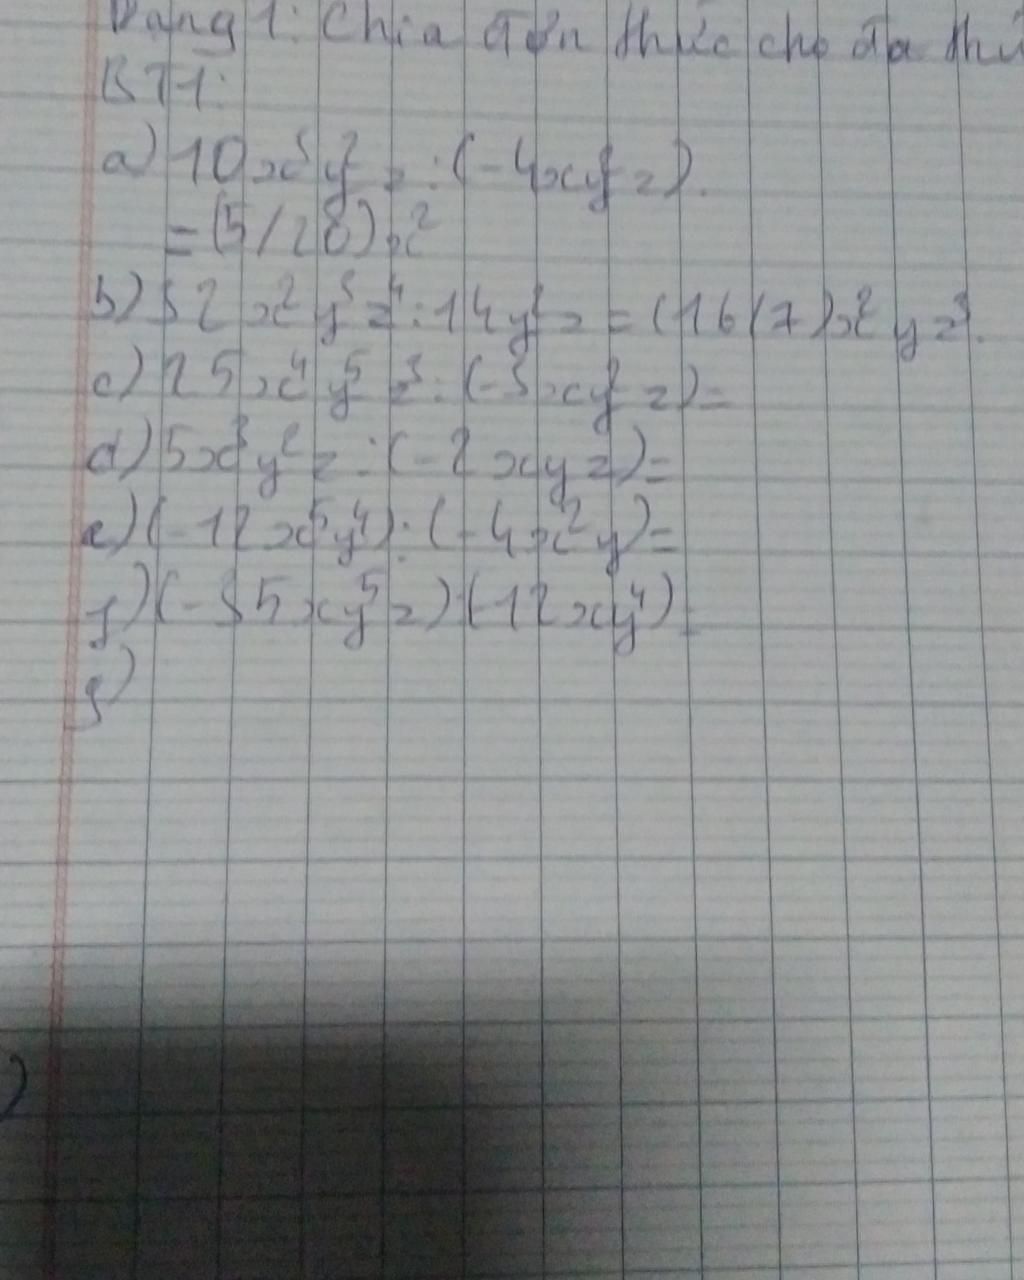 Dạng 1: Chia đơn thức cho đa thứ
BT1:
a) 10x³y²z : (-4xy²z).
= (5/28)x²
b) 32x²y³z⁴ : 14y²z = (16/7)x²yz³.
c) 25x⁴y⁵z³ : (-3xy²z) =
d) 5x³y²z : (-2xyz) =
e) (-12x⁵y⁴) : (-4x²y) =
f) (-35xy⁵z) (-12xy⁴)
g)